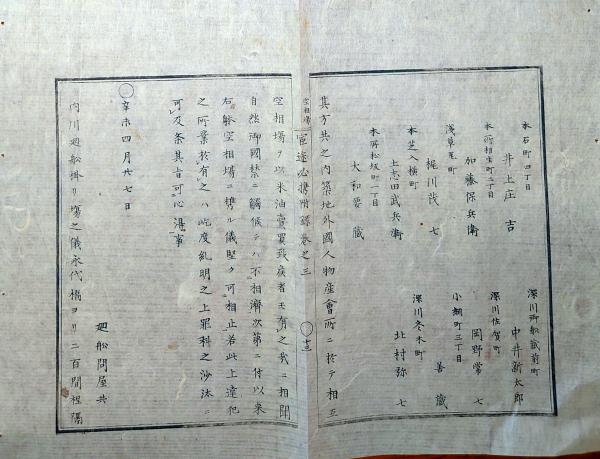 本石町四丁目
井上庄吉
深川御船蔵前町
中井新太郎
加藤保兵衛
深川佐賀町
岡野常七
梶川茂七
小網町三丁目
善蔵
本芝入横町
上志田武兵衛
深川冬木町
北村弥七
本所松坂町一丁目
大和要蔵
其方共之内築地外國人物産會所ニ於テ相立
空相場 官途必携附録巻之三 ○十三
空相場ヲ以米油賣買致候者モ有之哉ニ相聞
自然御國禁ニ觸候テハ不相濟次第ニ付以來
右躰空相場ニ携ル儀堅ク可相止若此上違犯
之所業於有之ハ此度糺明之上罪科之沙汰ニ
可及条其旨可心得事
○
辛未四月廿七日
廻船問屋共
内川廻船掛リ場之儀永代橋ヨリ二百間程隔